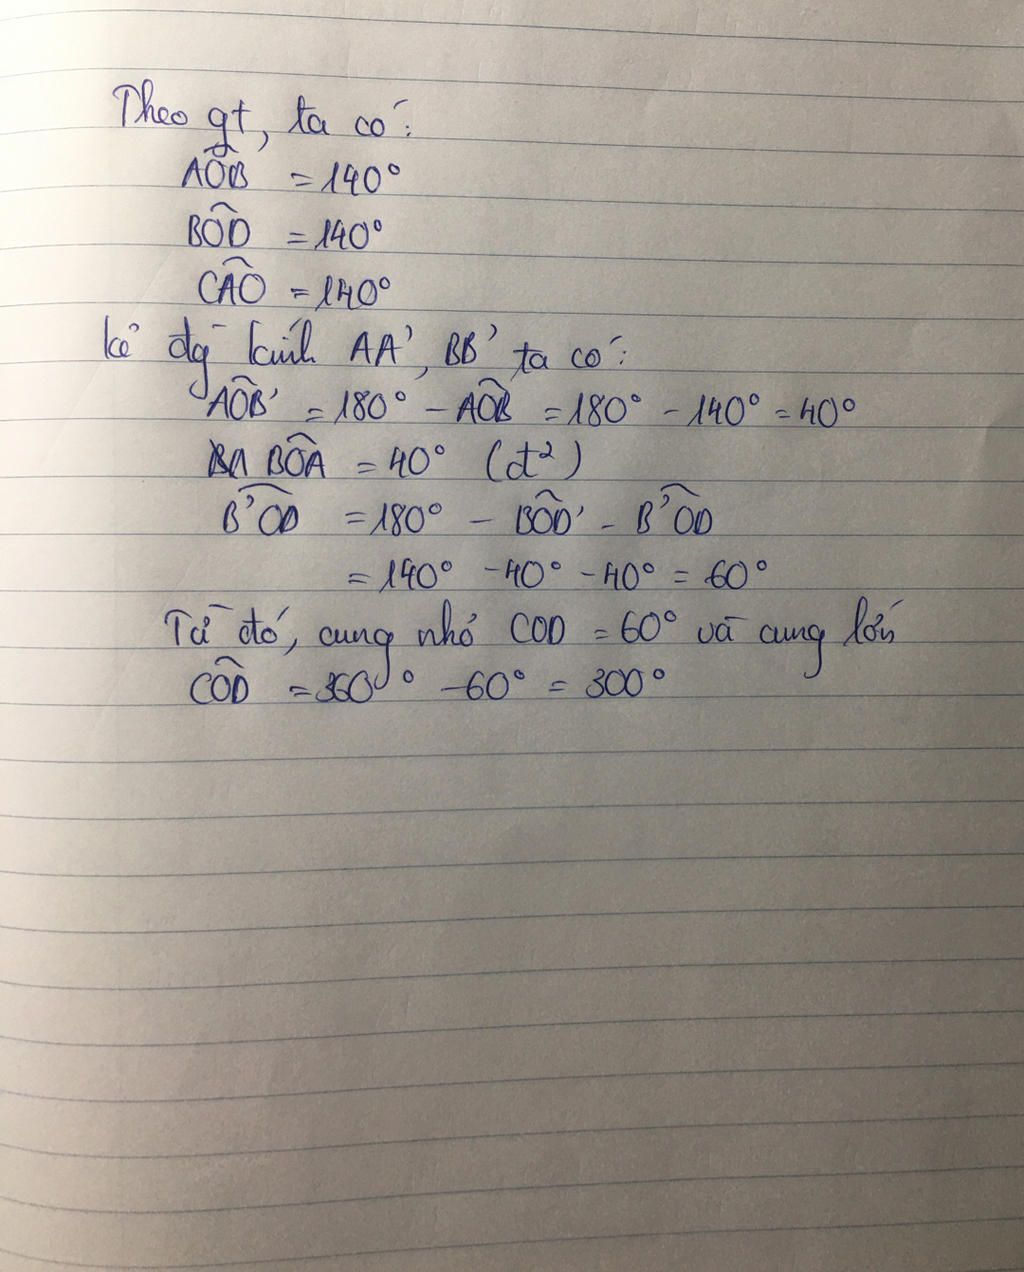 Theo gt, ta có:
AÔB = 140°
BÔD = 140°
CÂO = 140°
kẻ đg kính AA', BB' ta có:
AÔB' = 180° - AÔB = 180° - 140° = 40°
BÔA = 40° (đ²)
B'ÔD = 180° - BÔD' - B'ÔD
= 140° - 40° - 40° = 60°
Từ đó, cung nhỏ COD = 60° và cung lớn
CÔD = 360° - 60° = 300°